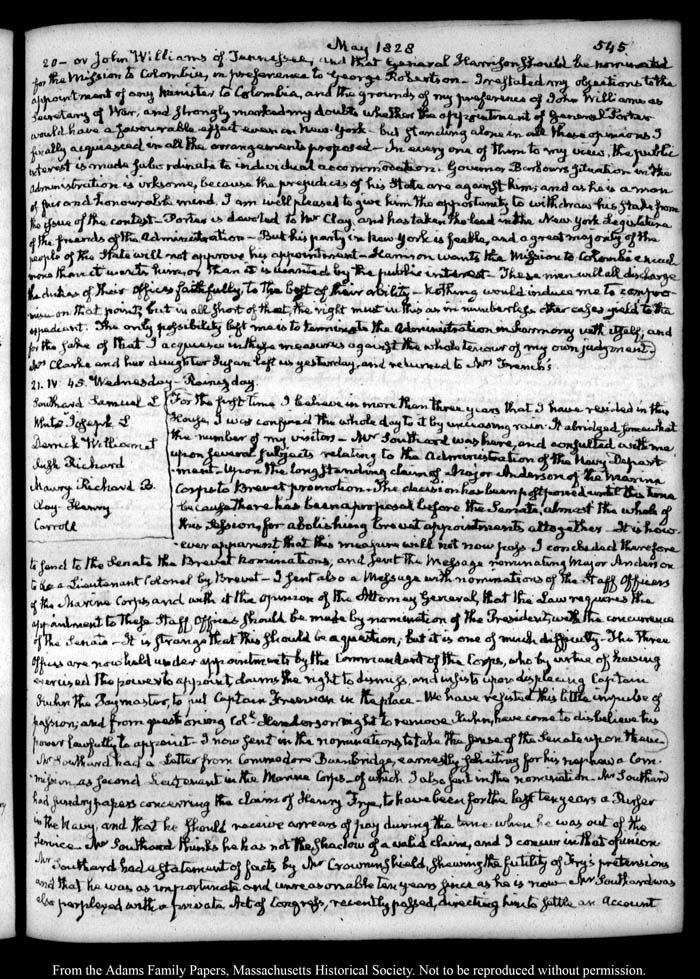 May 1828
545.
20 – or John Williams of Tennessee, and that General Harrison should be nominated
for the Mission to Colombia, in preference to George Robertson – I restated my objections to the
appointment of any Minister to Colombia, and the grounds of my preference of John Williams as
Secretary of War, and strongly marked my doubts whether the appointment of General Porter
would have a favourable effect even in New-York – but standing alone in all these opinions I
finally acquiesced in all the arrangements proposed – In every one of them to my view, the public
interest is made subordinate to individual accommodation. Governor Barbour's situation in the
Administration is irksome, because the prejudices of his State are against him; and as he is a man
of fair and honourable mind, I am well pleased to give him the opportunity to withdraw his stake from
the issue of the contest – Porter is devoted to Mr Clay, and has taken the lead in the New York Legislature
of the friends of the Administration – But his party in New York is feeble, and a great majority of the
people of the State will not approve his appointment – Harrison wants the Mission to Colombia much
more than it wants him, or than it is wanted by the public interest – These men will all discharge
the duties of their offices faithfully to the best of their ability – Nothing would induce me to compro-
mise on that point, but in all short of that, the right must in this as in numberless other cases yield to the
expedient. The only possibility left me is to terminate the Administration in harmony with itself, and
for the sake of that I acquiesce in these measures against the whole tenour of my own judgment.
Mrs Clarke and her daughter Susan left us yesterday, and returned to Mrs French's
21. IV. 45. Wednesday – Rainy day.
Southard Samuel L
White Joseph L
Derrick William S
Rush Richard
Maury Richard B.
Clay Henry
Carroll
For the first time I believe in more than three years that I have resided in this
House, I was confined the whole day to it by unceasing rain. It abridged somewhat
the number of my visitors – Mr Southard was here, and consulted with me
upon several subjects relating to the Administration of the Navy Depart-
ment – Upon the long standing claim of Major Anderson of the Marine
Corps to Brevet promotion – The decision has been postponed until this time
because there has been a proposal before the Senate, almost the whole of
this Session, for abolishing brevet appointments altogether – It is how-
ever apparent that this measure will not now pass – I concluded therefore
to send to the Senate the Brevet Nominations, and sent the Message nominating Major Anderson
to be a Lieutenant Colonel by Brevet – I sent also a Message with nominations of the Staff Officers
of the Marine Corps and with it the opinion of the Attorney General, that the Law requires the
appointment to these Staff Offices should be made by nomination of the President, with the concurrence
of the Senate – It is strange that this should be a question; but it is one of much difficulty – The three
Offices are now held under appointments by the Commandant of the Corps, who by virtue of having
exercised the power to appoint claims the right to dismiss, and insists upon displacing Captain
Kuhn the Paymaster, to put Captain Freeman in the place – We have resisted this little impulse of
passion; and from questioning Col. Henderson's right to remove Kuhn, have come to disbelieve his
power lawfully to appoint – I now sent in the nominations to take the sense of the Senate upon them –
Mr Southard had a Letter from Commodore Bainbridge, earnestly soliciting for his nephew a Com-
mission as second Lieutenant in the Marine Corps – of which I also sent in the nomination – Mr Southard
had sundry papers concerning the claim of Henry Frye, to have been for the last ten years a Purser
in the Navy, and that he should receive arrears of pay during the time when he was out of the
Service – Mr Southard thinks he has not the shadow of a valid claim, and I concur in that opinion
Mr Southard had a statement of facts by Mr Crowninshield, shewing the futility of Fry's pretensions
and that he was as importunate and unreasonable ten years since as he is now – Mr Southard was
also perplexed with a private Act of Congress, recently passed, directing him to settle an Account
From the Adams Family Papers, Massachusetts Historical Society. Not to be reproduced without permission.